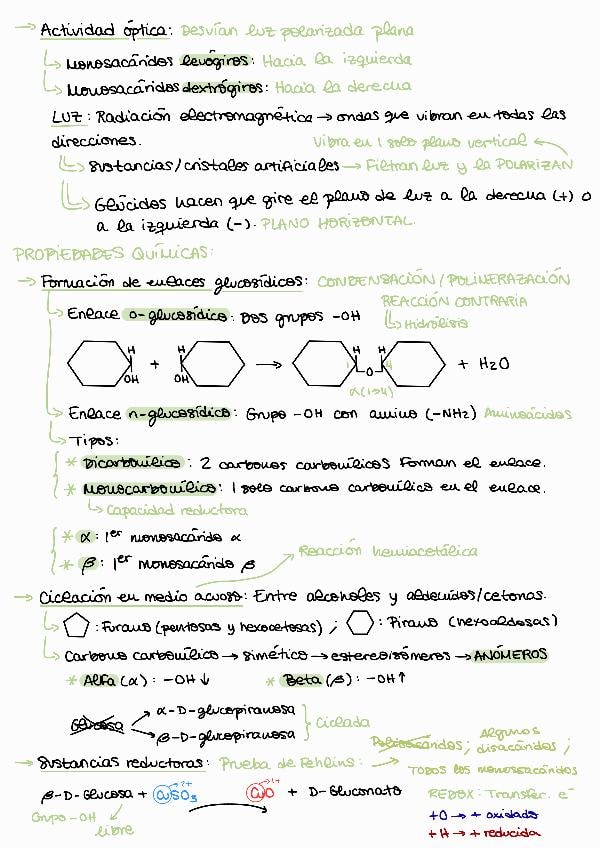 → Actividad óptica: Desvían luz polarizada plana
↳ Monosacáridos levógiros: Hacia la izquierda
↳ Monosacáridos dextrógiros: Hacia la derecha
LUZ: Radiación electromagnética → ondas que vibran en todas las
direcciones. Vibra en 1 solo plano vertical ←
↳ Sustancias/cristales artificiales → Filtran luz y la POLARIZAN
↳ Glúcidos hacen que gire el plano de luz a la derecha (+) o
a la izquierda (-). PLANO HORIZONTAL.
PROPIEDADES QUÍMICAS:
→ Formación de enlaces glucosídicos: CONDENSACIÓN / POLIMERAZACIÓN
REACCIÓN CONTRARIA
↳ Enlace o-glucosídico: Dos grupos -OH
↳ Hidrólisis
H H H H
+ → 1 4 + H2O
OH OH O
α(1→4)
↳ Enlace n-glucosídico: Grupo -OH con amino (-NH2) Aminoácidos
↳ Tipos:
* Dicarbonílico: 2 carbonos carbonílicos forman el enlace.
* Monocarbonílico: 1 solo carbono carbonílico en el enlace.
↳ Capacidad reductora
* α: 1er monosacárido α
* β: 1er monosacárido β
Reacción hemiacetálica
→ Ciclación en medio acuoso: Entre alcoholes y aldehídos/cetonas.
↳ : Furano (pentosas y hexocetosas) ; : Pirano (hexoaldosas)
↳ Carbono carbonílico → simético → estereoisómeros → ANÓMEROS
* Alfa (α): -OH ↓ * Beta (β): -OH ↑
Glucosa → α-D-glucopiranosa
→ β-D-glucopiranosa
Ciclada
→ Sustancias reductoras: Prueba de Fehlins: →
Polisacáridos; Algunos
disacáridos;
TODOS los monosacáridos
β-D-Glucosa + CuSO3 2+ CuO 1+ + D-Gluconato
REDOX: Transfer. e-
Grupo -OH
libre
+O → + oxidado
+H → + reducida